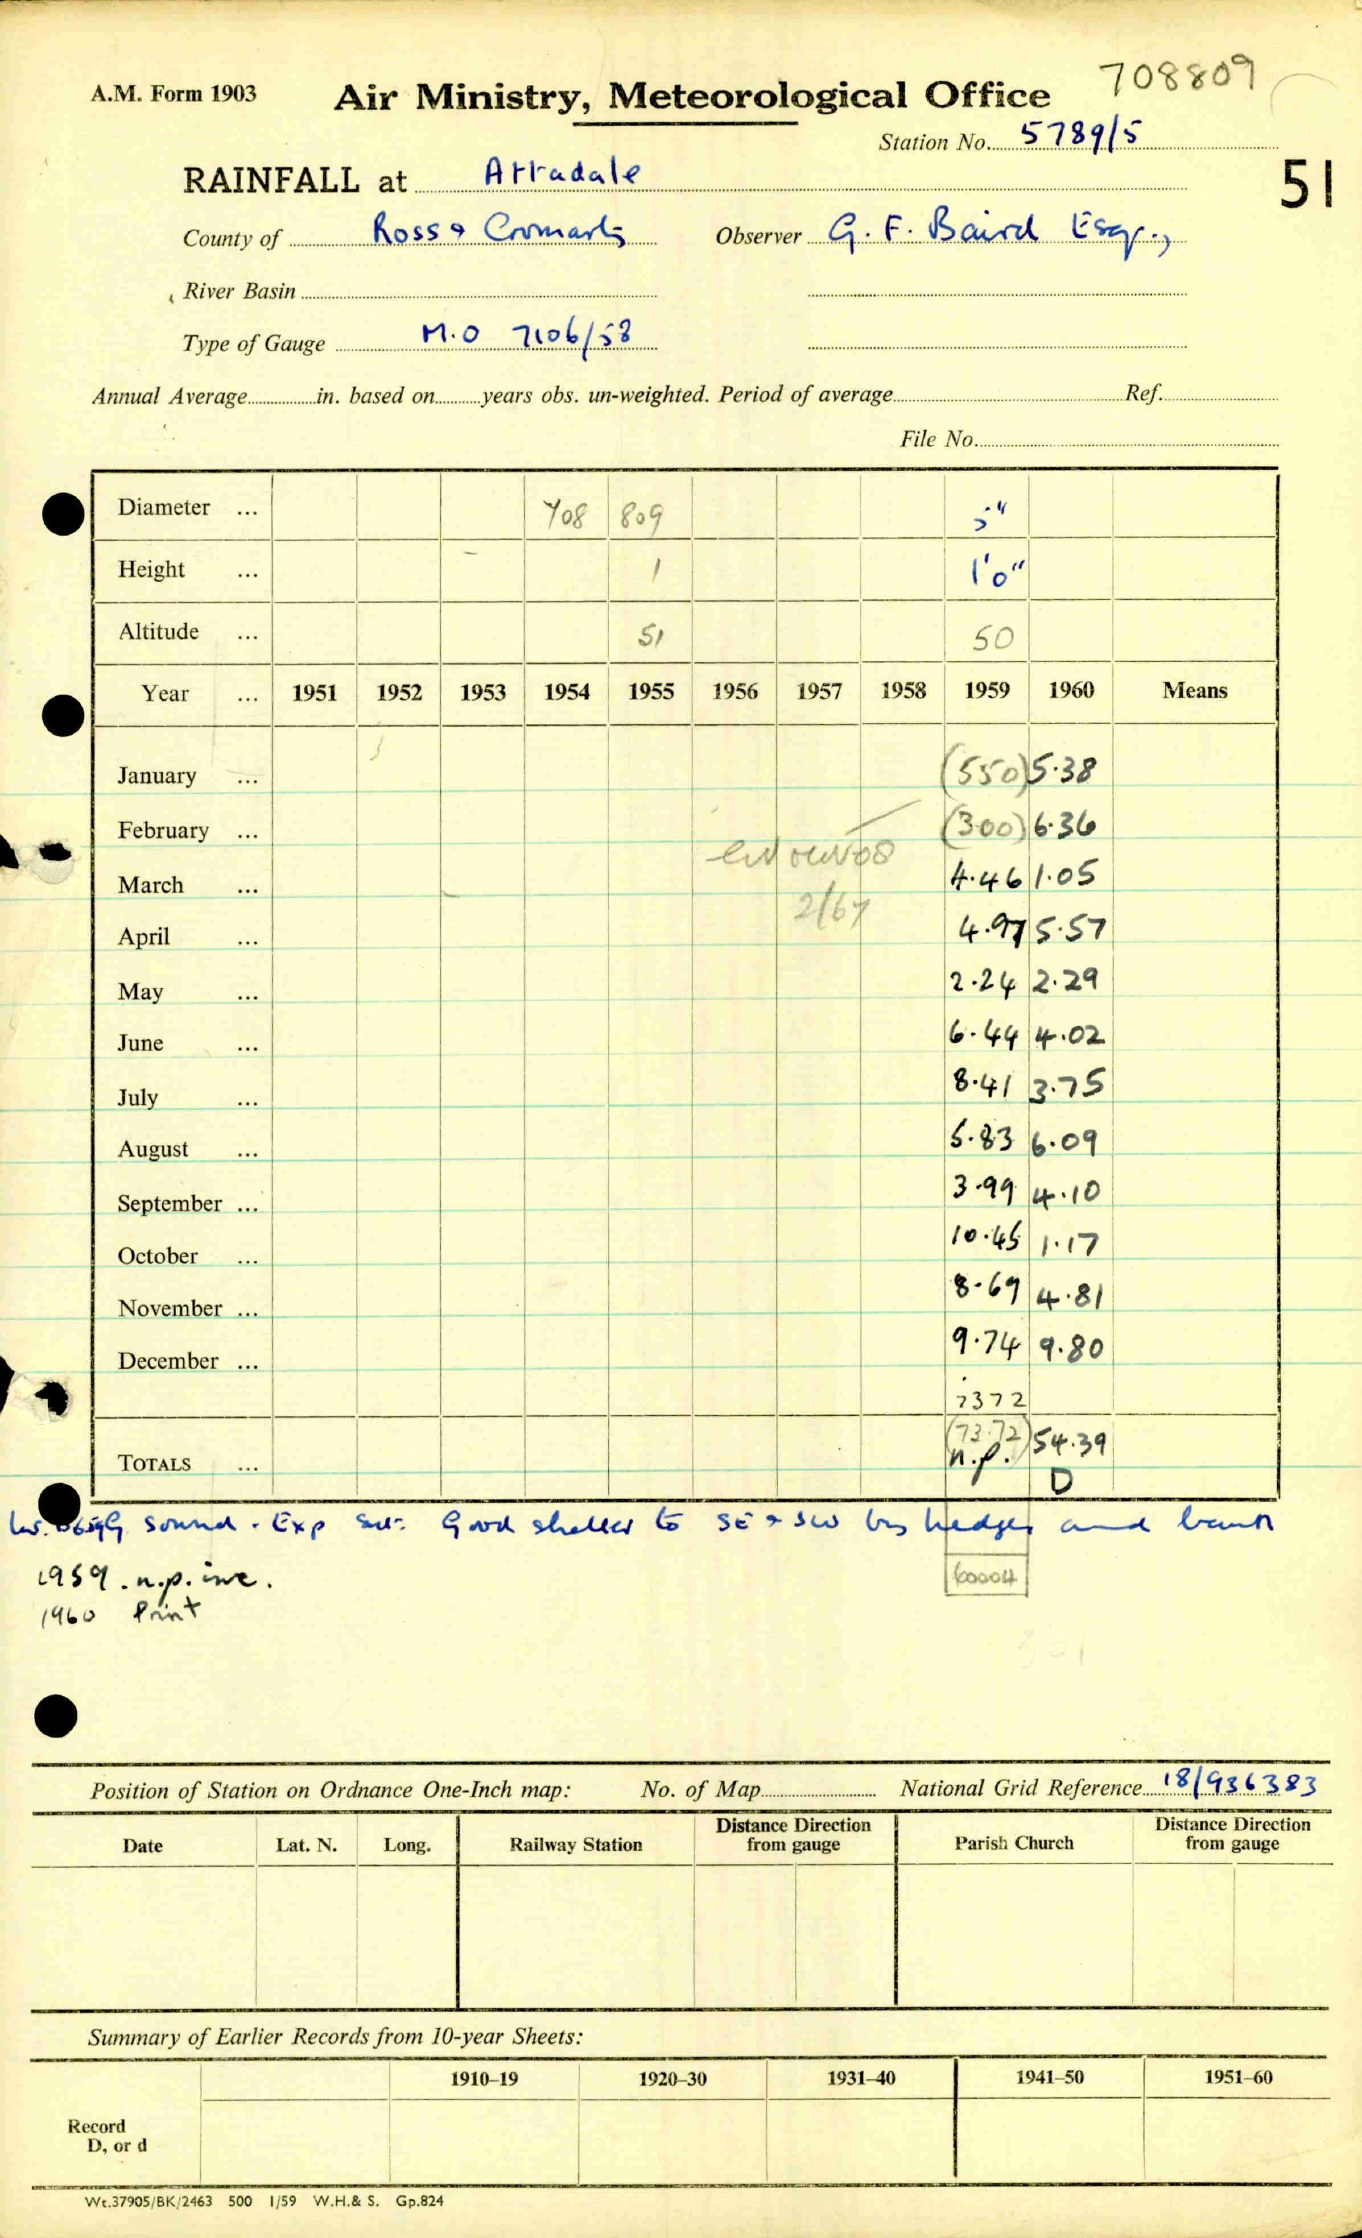 708809
A.M. Form 1903 Air Ministry, Meteorological Office
Station No. 5789/5
RAINFALL at Attadale 51
County of Ross & Cromarty Observer G. F. Baird Esq.,
River Basin
Type of Gauge M.O 7106/58
Annual Average in. based on years obs. un-weighted. Period of average Ref.
File No.
Diameter ... 708 809 5"
Height ... 1 1'0"
Altitude ... 51 50
Year ... 1951 1952 1953 1954 1955 1956 1957 1958 1959 1960 Means
January ... (550) 5.38
February ... (300) 6.36
March ... 4.46 1.05
2/67
April ... 4.97 5.57
May ... 2.24 2.29
June ... 6.44 4.02
July ... 8.41 3.75
August ... 5.83 6.09
September ... 3.99 4.10
October ... 10.45 1.17
November ... 8.69 4.81
December ... 9.74 9.80
7372
TOTALS ... (73.72) n.p. 54.39
D
sound. Exp Good shelter to SE & SW by hedges and bank
1959. n.p. inc.
60004
1960 Print
Position of Station on Ordnance One-Inch map: No. of Map National Grid Reference 18/936383
Date Lat. N. Long. Railway Station Distance Direction from gauge Parish Church Distance Direction from gauge
Summary of Earlier Records from 10-year Sheets:
1910–19 1920–30 1931–40 1941–50 1951–60
Record
D, or d
Wt.37905/BK/2463 500 1/59 W.H.& S. Gp.824